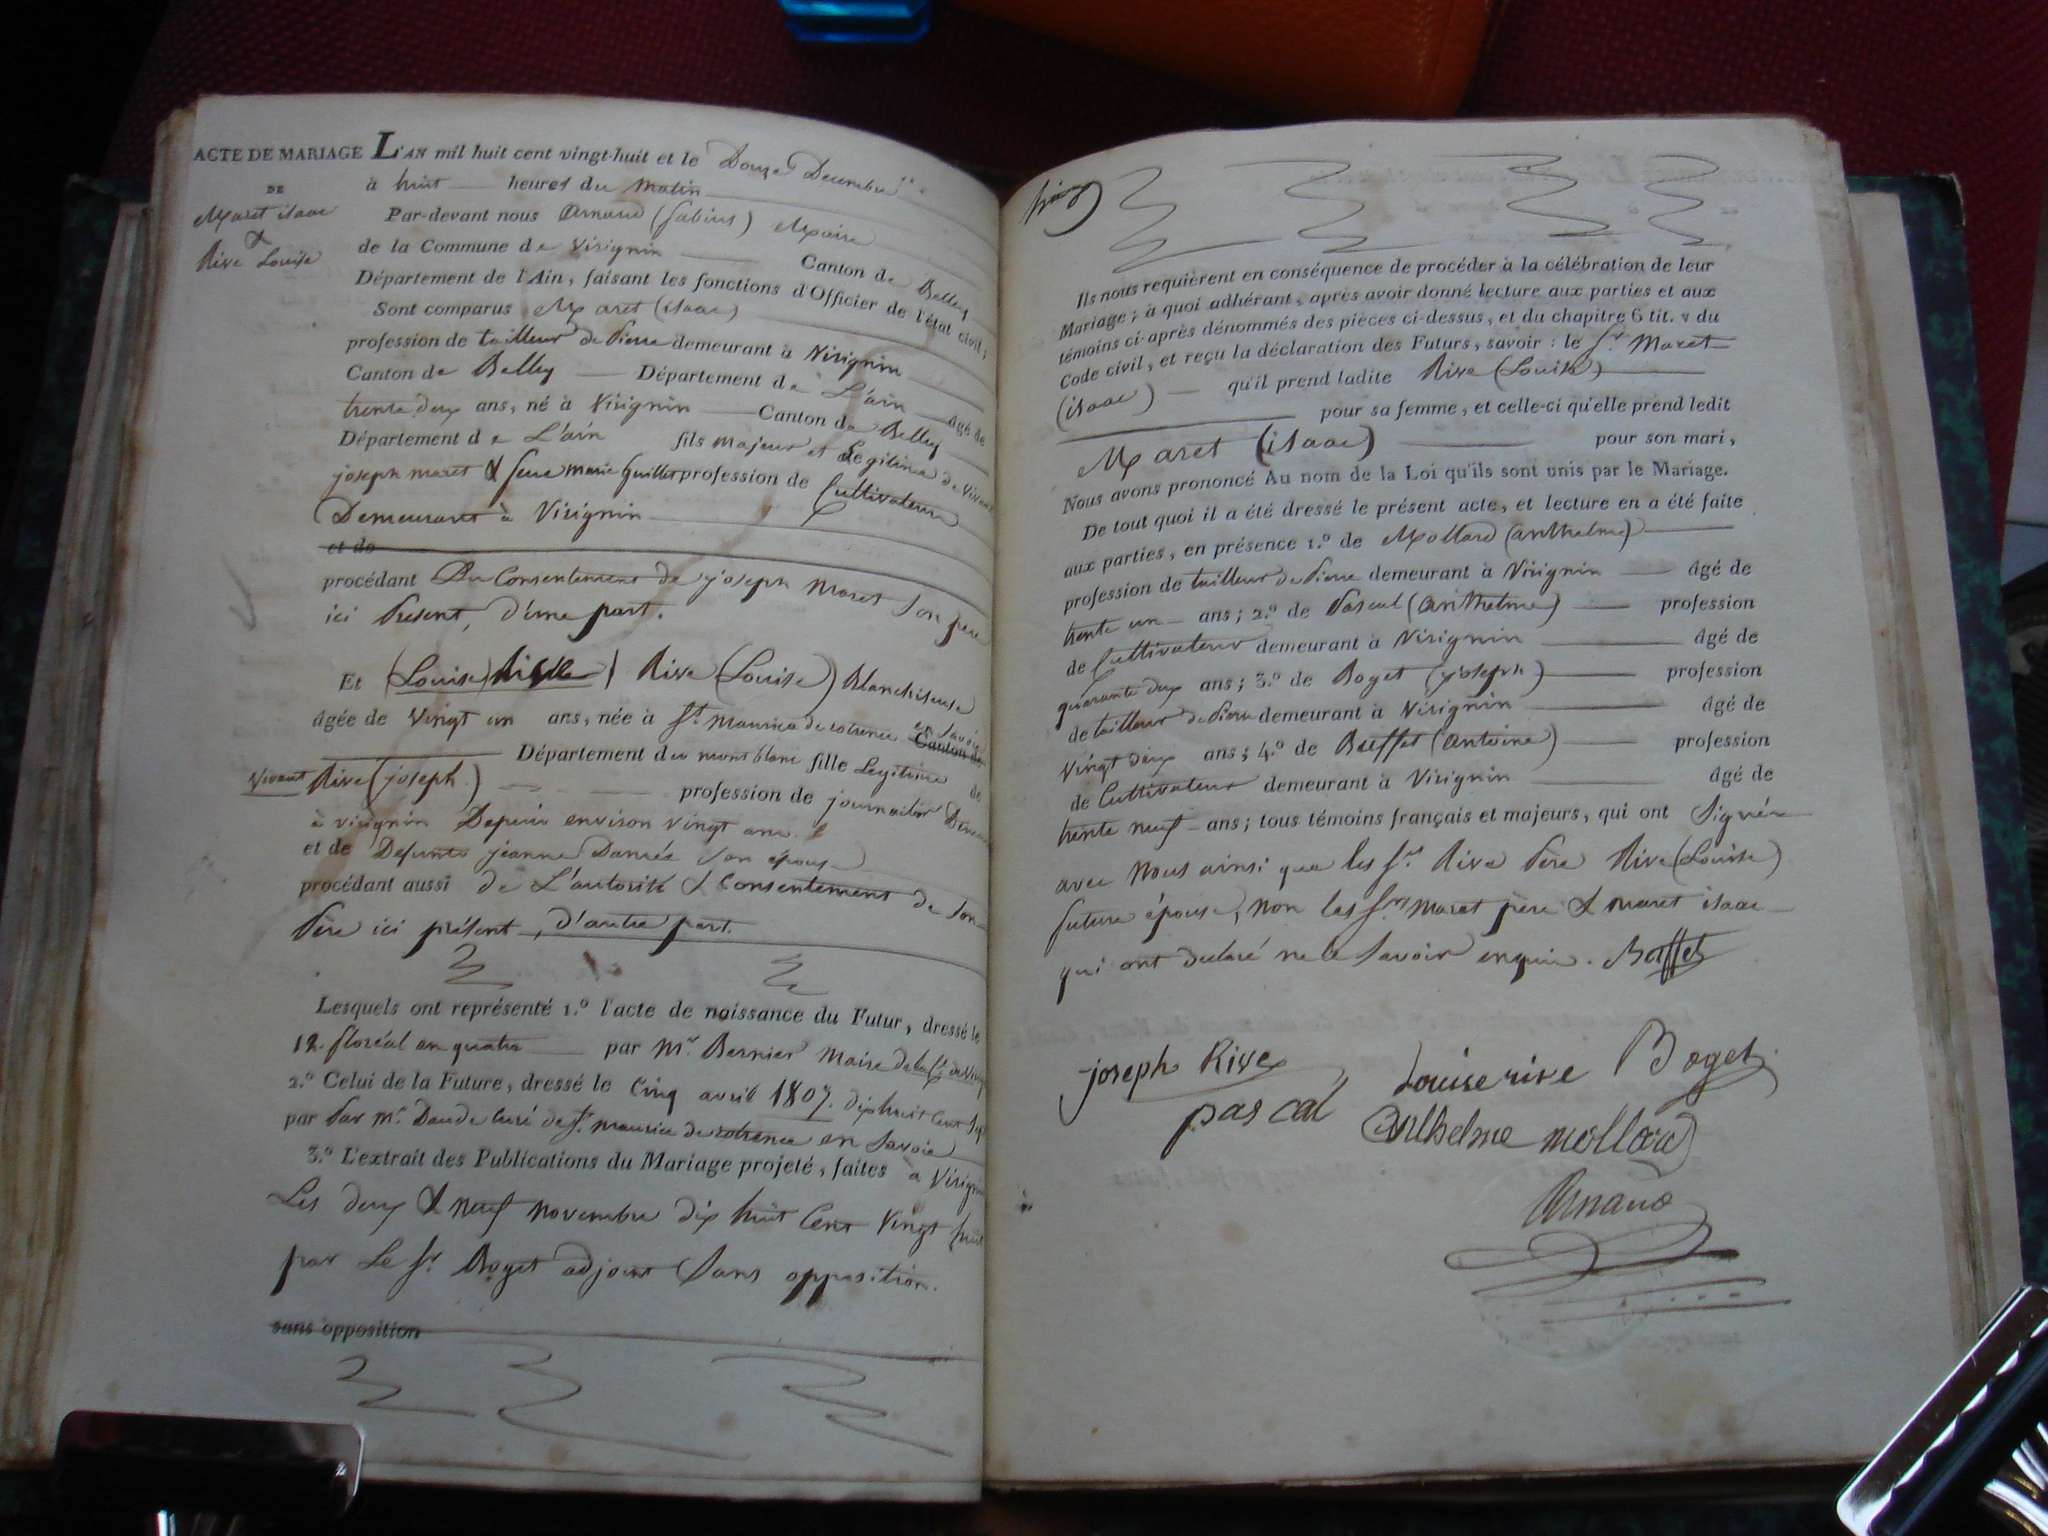 ACTE DE MARIAGE
DE
Maret isaac
&
Rive Louise
L'AN mil huit cent vingt-huit et le Douze Decembre
à huit heures du matin
Par-devant nous Arnaud (Sabin) Maire
de la Commune de Virignin Canton de Belley
Département de l'Ain, faisant les fonctions d'Officier de l'état civil;
Sont comparus Maret (isaac)
profession de tailleur de Pierre demeurant à Virignin
Canton de Belley Département de L'ain âgé de
trente deux ans, né à Virignin Canton de Belley
Département de L'ain fils majeur et Legitime de Vivant
joseph maret & feue marie Guillot profession de Cultivateur
Demeurant à Virignin
et de
procédant Du Consentement de joseph maret Son père
ici Présent, d'une part.
Et (Louise) Rive (Louise) Blanchiseuse
âgée de Vingt un ans, née à St. Maurice de rotrence en Savoie
Canton de
Département du mont blanc fille Legitime de
Vivant Rive (joseph) profession de journalier
à virignin Depuis environ vingt ans
et de Defunte jeanne son épouse
procédant aussi de L'autorité & Consentement de Son
Père ici présent, d'autre part.
Lesquels ont représenté 1.º l'acte de naissance du Futur, dressé le
12 floréal an quatre par mr. Bernier Maire de la Cne de
2.º Celui de la Future, dressé le Cinq avril 1807. dix huit cent Sept
par Par Mr. Daude Curé de St. maurice de rotrence en Savoie
3.º L'extrait des Publications du Mariage projeté, faites à Virignin
Les deux & neuf novembre dix huit Cent Vingt huit
par Le Sr. Boget adjoint Sans opposition.
sans opposition
Ils nous requièrent en conséquence de procéder à la célébration de leur
Mariage; à quoi adhérant, après avoir donné lecture aux parties et aux
témoins ci-après dénommés des pièces ci-dessus, et du chapitre 6 tit. v du
Code civil, et reçu la déclaration des Futurs, savoir: le Sr. Maret
(isaac) qu'il prend ladite Rive (Louise)
pour sa femme, et celle-ci qu'elle prend ledit
Maret (isaac) pour son mari,
Nous avons prononcé Au nom de la Loi qu'ils sont unis par le Mariage.
De tout quoi il a été dressé le présent acte, et lecture en a été faite
aux parties, en présence 1.º de Mollard (anthelme)
profession de tailleur de Pierre demeurant à Virignin âgé de
trente un ans; 2.º de Pascal (anthelme) profession
de Cultivateur demeurant à Virignin âgé de
quarante deux ans; 3.º de Boget (joseph) profession
de tailleur de Pierre demeurant à Virignin âgé de
Vingt deux ans; 4.º de Buffet (antoine) profession
de Cultivateur demeurant à Virignin âgé de
trente neuf ans; tous témoins français et majeurs, qui ont Signés
avec nous ainsi que les Srs. Rive Père Rive (Louise)
future épouse, non les Srs. Maret père & maret isaac
qui ont declaré ne le Savoir enquis. Boffet
joseph Rive Louise rive Boget
pascal Anthelme mollard
Arnaud